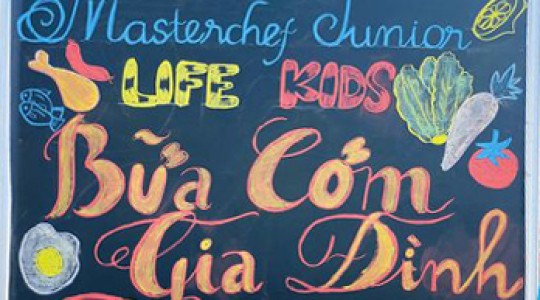 Masterchef Junior
LIFE KIDS
Bữa Cơm
Gia Đình